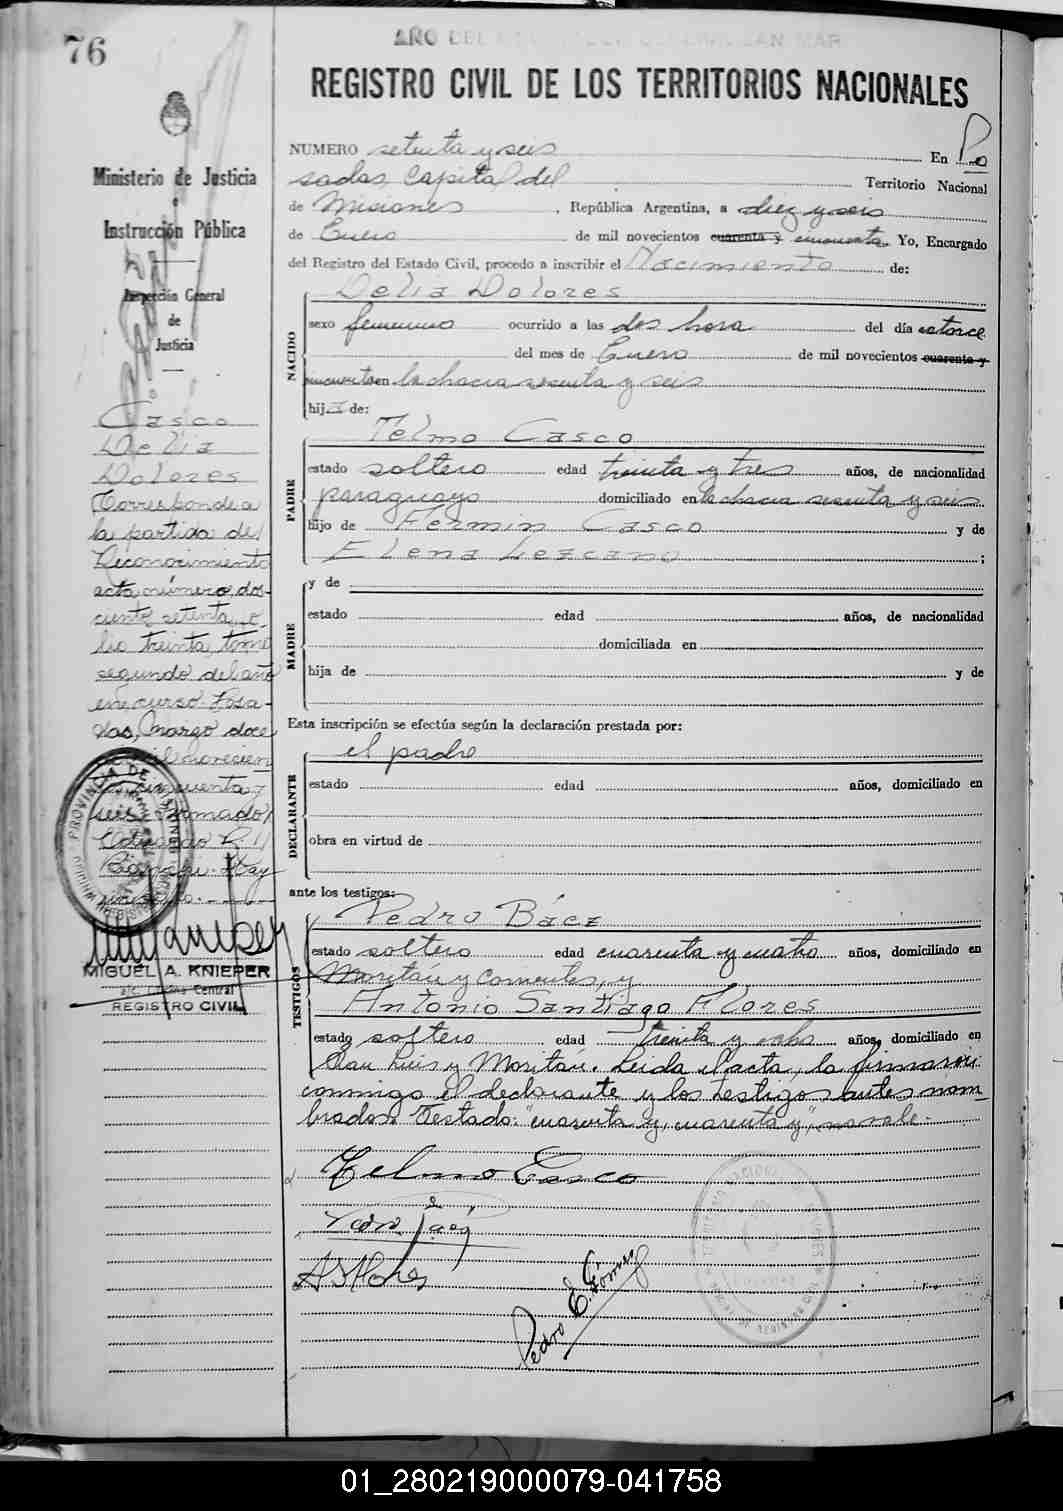 76
AÑO DEL
REGISTRO CIVIL DE LOS TERRITORIOS NACIONALES
Ministerio de Justicia
e
Instrucción Pública
Inspección General
de
Justicia
NUMERO setenta y seis En Po
sadas, Capital del Territorio Nacional
de Misiones, República Argentina, a diez y seis
de Enero de mil novecientos cuarenta y cincuenta. Yo, Encargado
del Registro del Estado Civil, procedo a inscribir el Nacimiento de:
NACIDO
Delia Dolores
sexo femenino ocurrido a las dos hora del día catorce
del mes de Enero de mil novecientos cuarenta y
cincuenta en la chacra sesenta y seis
hija de:
PADRE
Telmo Casco
estado soltero edad treinta y tres años, de nacionalidad
paraguayo domiciliado en la chacra sesenta y seis
hijo de Fermin Casco y de
Elena Lezcano ;
MADRE
y de
estado edad años, de nacionalidad
domiciliada en
hija de y de
Esta inscripción se efectúa según la declaración prestada por:
DECLARANTE
el padre
estado edad años, domiciliado en
obra en virtud de
ante los testigos:
TESTIGOS
Pedro Báez
estado soltero edad cuarenta y cuatro años, domiciliado en
Moritán y Corrientes, y
Antonio Santiago Flores
estado soltero edad treinta y ocho años, domiciliado en
San Luis y Moritán. Leida el acta, la firmaron
conmigo el declarante y los testigos antes nom-
brados. Testado: "cuarenta y, cuarenta y", no vale.
Telmo Casco
A S Flores
Pedro E. Gómez
Casco
Delia
Dolores
Corresponde a
la partida de
Reconocimiento
acta número dos-
ciento setenta, fo-
lio treinta, tomo
segundo del año
en curso. Posa-
das, Marzo doce
de mil novecien
cincuenta y
seis. Firmado,
Eduardo
Hay
PROVINCIA DE MISIONES
MIGUEL A. KNIEPER
a/c. Oficina Central
REGISTRO CIVIL
01_280219000079-041758